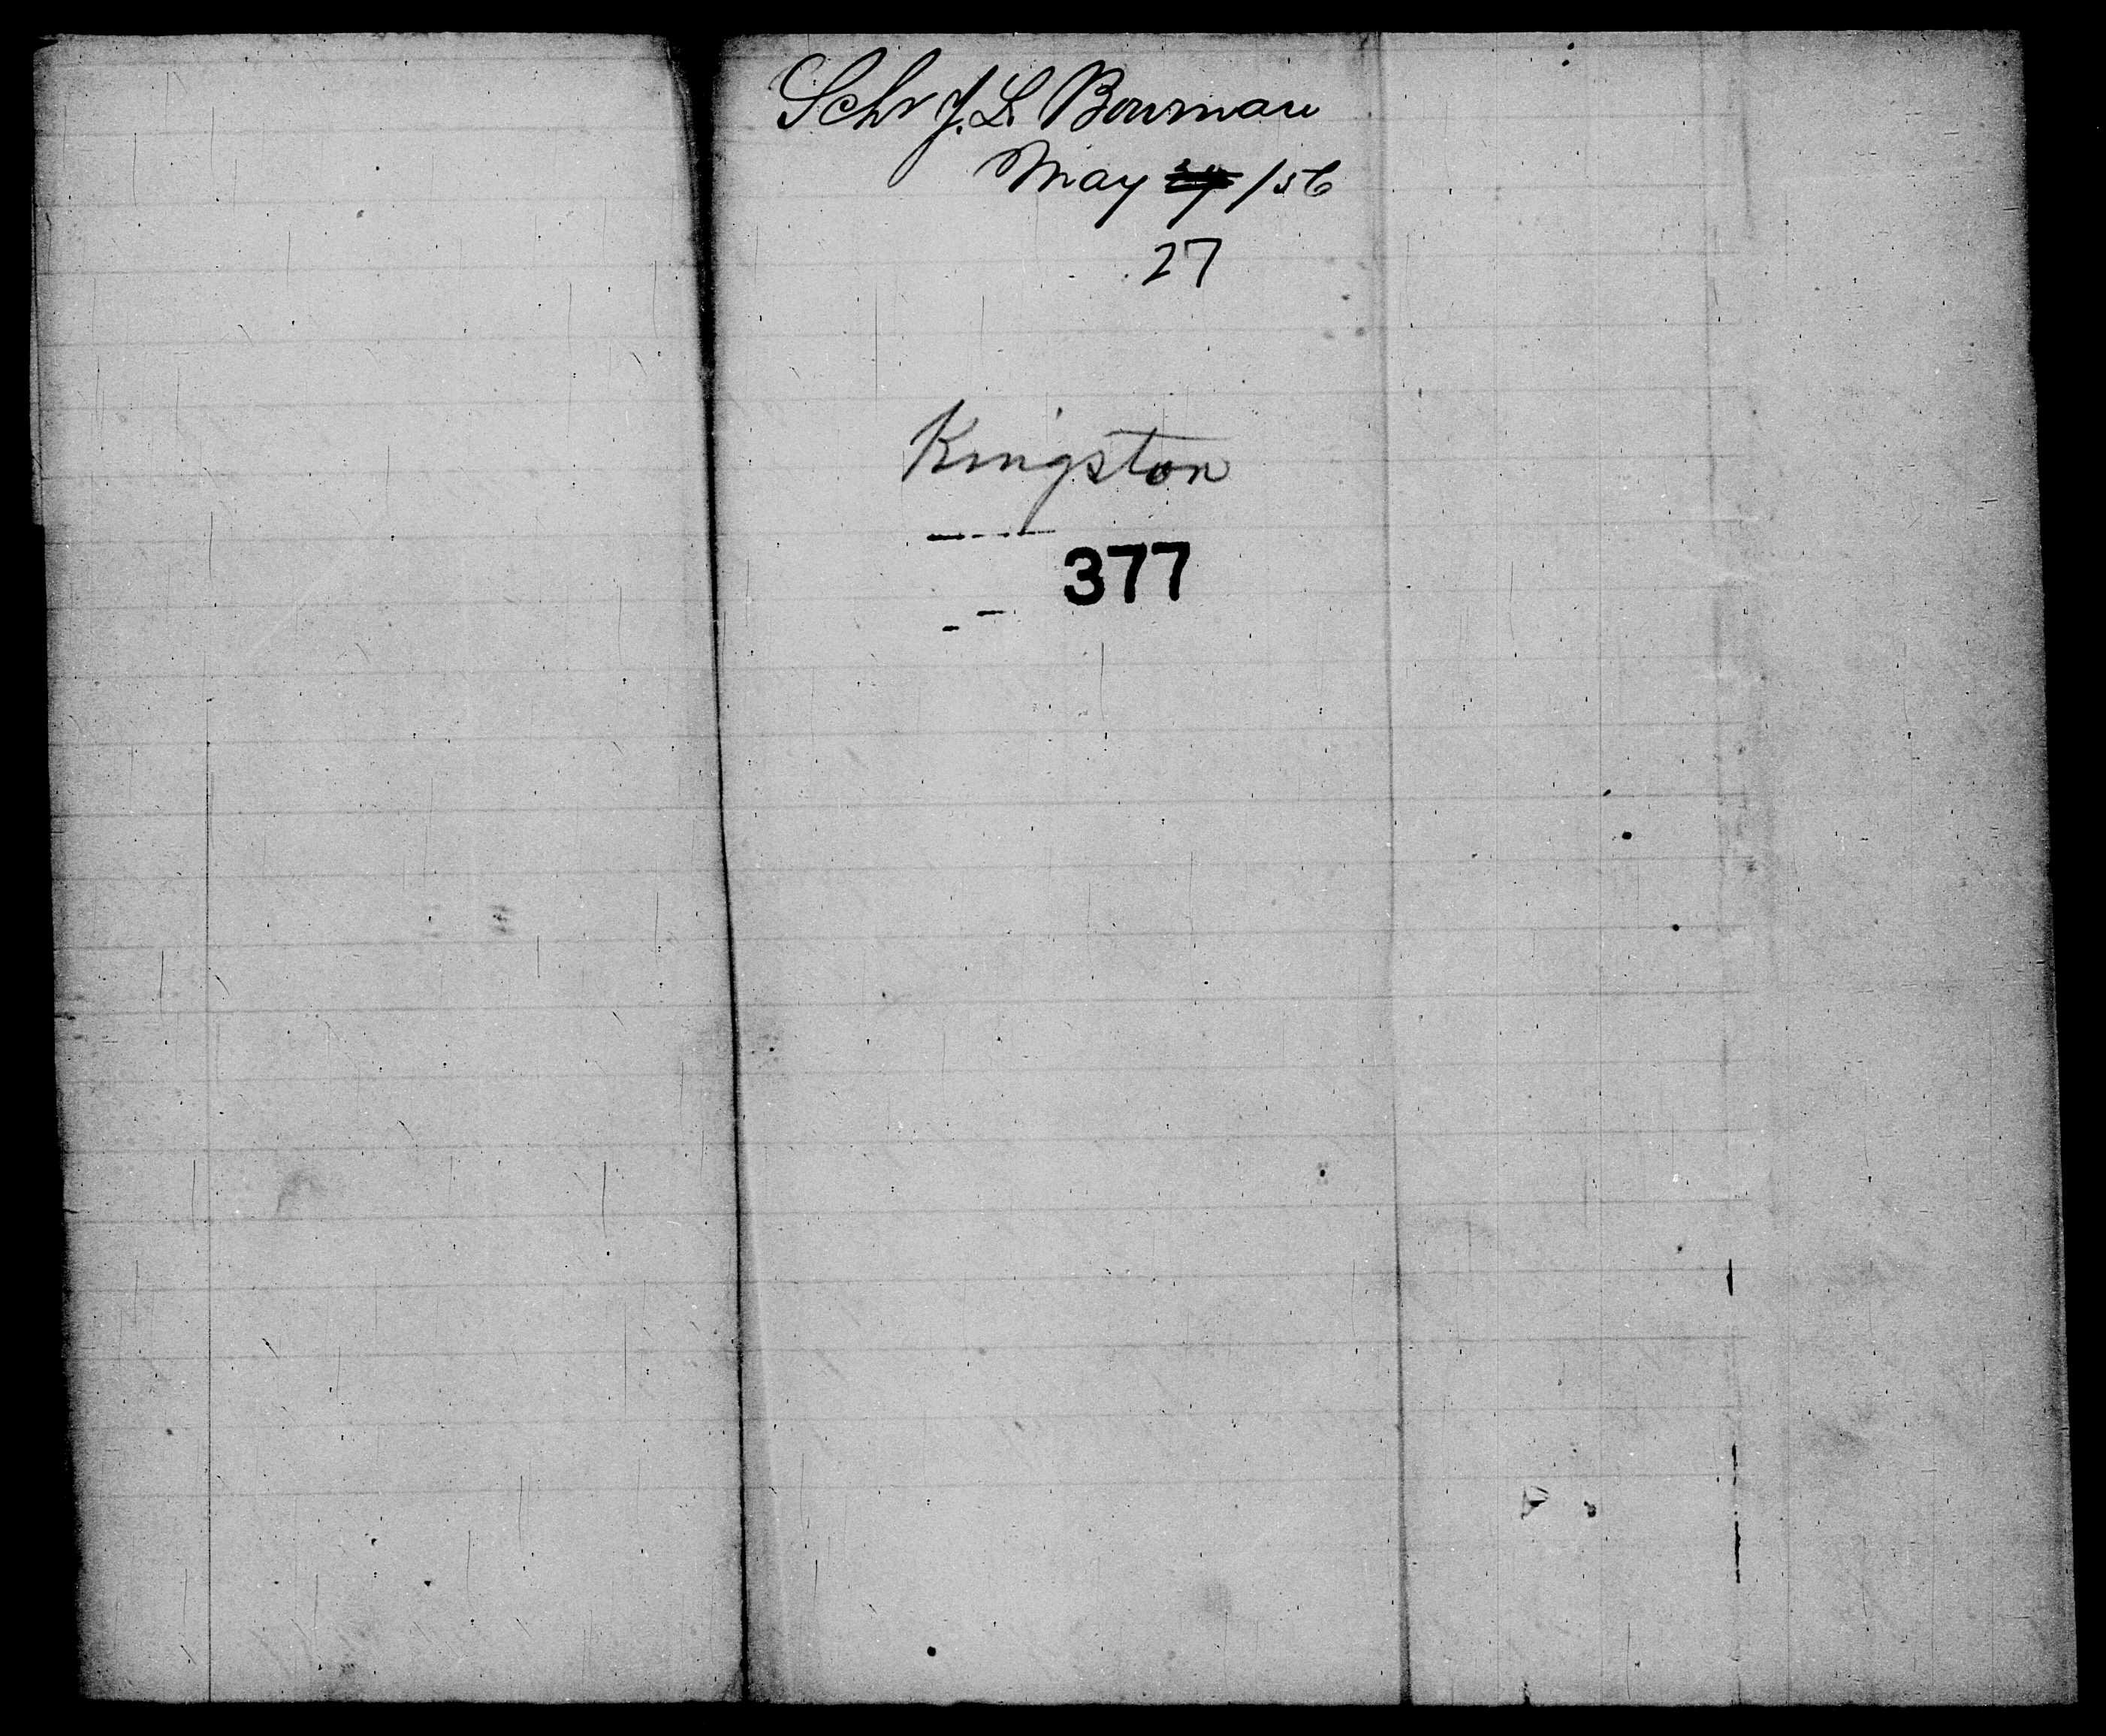 Schr J. L. Bowman
May /56
27
Kingston
377